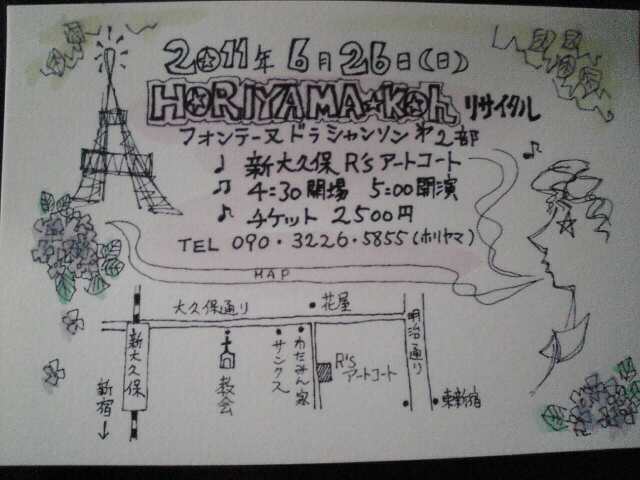 2011年 6月 26日(日)
HORIYAMA★KOh リサイタル
フォンテーヌ ドラ シャンソン 第2部
新大久保 R'sアートコート
4:30開場 5:00開演
チケット 2500円
TEL 090・3226・5855(ホリヤマ)
MAP
大久保通り
花屋
明治通り
新大久保
新宿
↓
教会
サンクス
わたみん家
R's
アートコート
東新宿